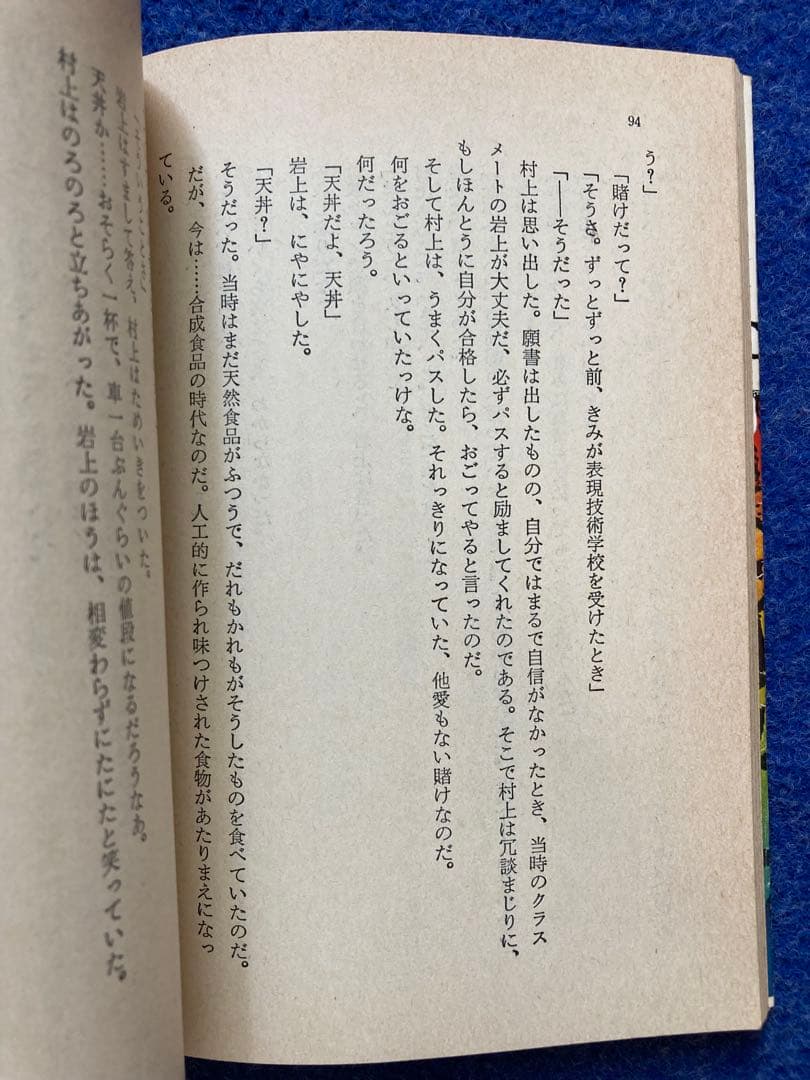 94
う？」
「賭けだって？」
「そうさ。ずっとずっと前、きみが表現技術学校を受けたとき」
「――そうだった」
村上は思い出した。願書は出したものの、自分ではまるで自信がなかったとき、当時のクラス
メートの岩上が大丈夫だ、必ずパスすると励ましてくれたのである。そこで村上は冗談まじりに、
もしほんとうに自分が合格したら、おごってやると言ったのだ。
そして村上は、うまくパスした。それっきりになっていた、他愛もない賭けなのだ。
何をおごるといっていたっけな。
何だったろう。
「天丼だよ、天丼」
岩上は、にやにやした。
「天丼？」
そうだった。当時はまだ天然食品がふつうで、だれもかれもがそうしたものを食べていたのだ。
だが、今は……合成食品の時代なのだ。人工的に作られ味つけされた食物があたりまえになっ
ている。
岩上はすまして答え、村上はためいきをついた。
天丼か……おそらく一杯で、車一台ぶんぐらいの値段になるだろうなあ。
村上はのろのろと立ちあがった。岩上のほうは、相変わらずにたにたと笑っていた。